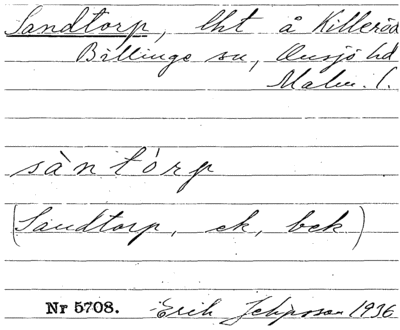 Sandtorp, lht å Killeröd
Billinge sn, Onsjö hd
Malm. l.
sàntórp
(Sandtorp, ek, bek)
Nr 5708. Erik Jeppsson 1936